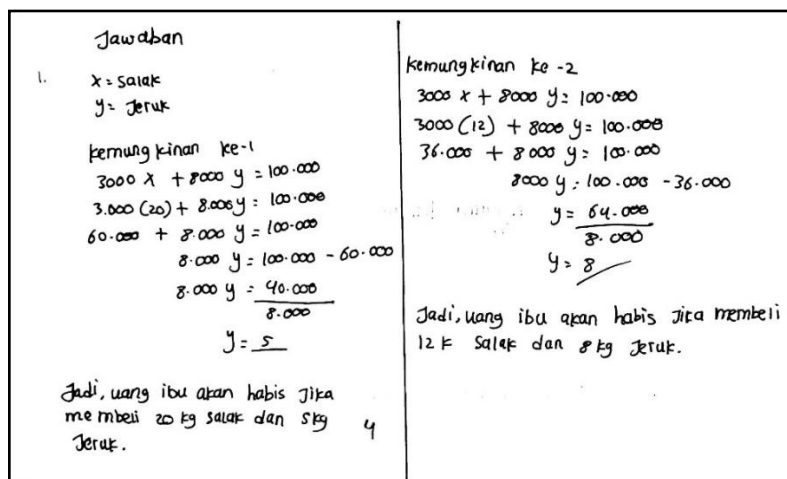 Jawaban
1. x = Salak
y = Jeruk
kemungkinan ke-1
3000 x + 8000 y = 100.000
3.000 (20) + 8.000 y = 100.000
60.000 + 8.000 y = 100.000
8.000 y = 100.000 - 60.000
8.000 y = 40.000
8.000
y = 5
Jadi, uang ibu akan habis Jika
membeli 20 kg salak dan 5 kg
Jeruk.
4
kemungkinan ke -2
3000 x + 8000 y = 100.000
3000 (12) + 8000 y = 100.000
36.000 + 8000 y = 100.000
8000 y = 100.000 - 36.000
y = 64.000
8.000
y = 8
Jadi, uang ibu akan habis Jika membeli
12 k salak dan 8 kg Jeruk.